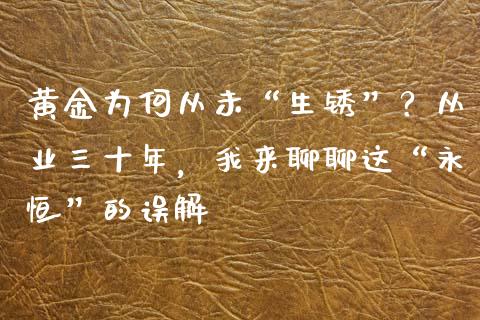 黄金为何从未“生锈”？从
业三十年，我来聊聊这“永
恒”的误解